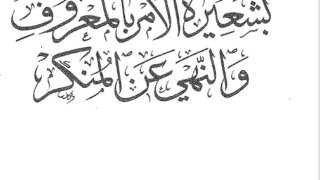 بشعيرة الأمر بالمعروف
والنهي عن المنكر